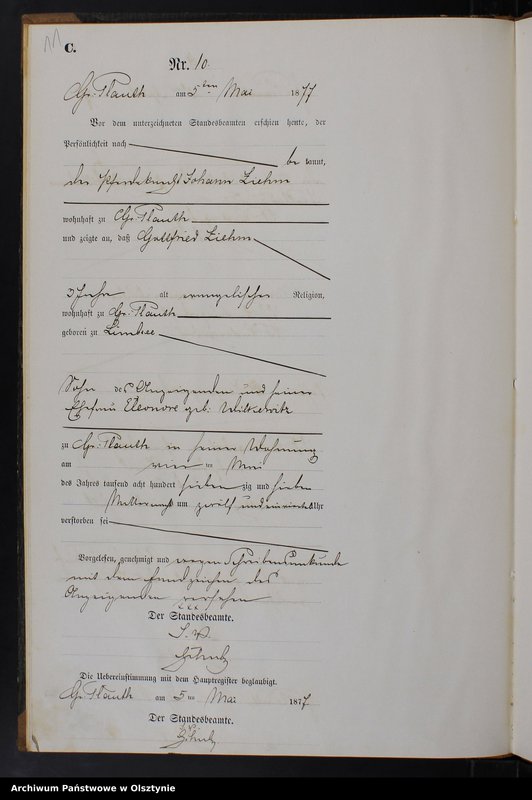 C.
Nr. 10.
Gr. Plauth am 5ten Mai 1877
Vor dem unterzeichneten Standesbeamten erschien heute, der
Persönlichkeit nach
be kannt,
der Pferdeknecht Johann Ziehm
wohnhaft zu Gr. Plauth
und zeigte an, daß Gottfried Ziehm
alt evangelischer Religion,
wohnhaft zu Gr. Plauth
geboren zu Limbsee
Sohn des Anzeigenden und seiner
Ehefrau Eleonore geb. Wilkewitz
zu Gr. Plauth in seiner Wohnung
am vier ten Mai
des Jahres tausend acht hundert sieben zig und sieben
Mitternacht um zwölf und ein viertel Uhr
verstorben sei
Vorgelesen, genehmigt und wegen Schreibensunkunde
mit dem Handzeichen des
Anzeigenden versehen
XXX
Der Standesbeamte.
Die Uebereinstimmung mit dem Hauptregister beglaubigt.
Gr. Plauth am 5ten Mai 1877.
Der Standesbeamte.
Archiwum Państwowe w Olsztynie